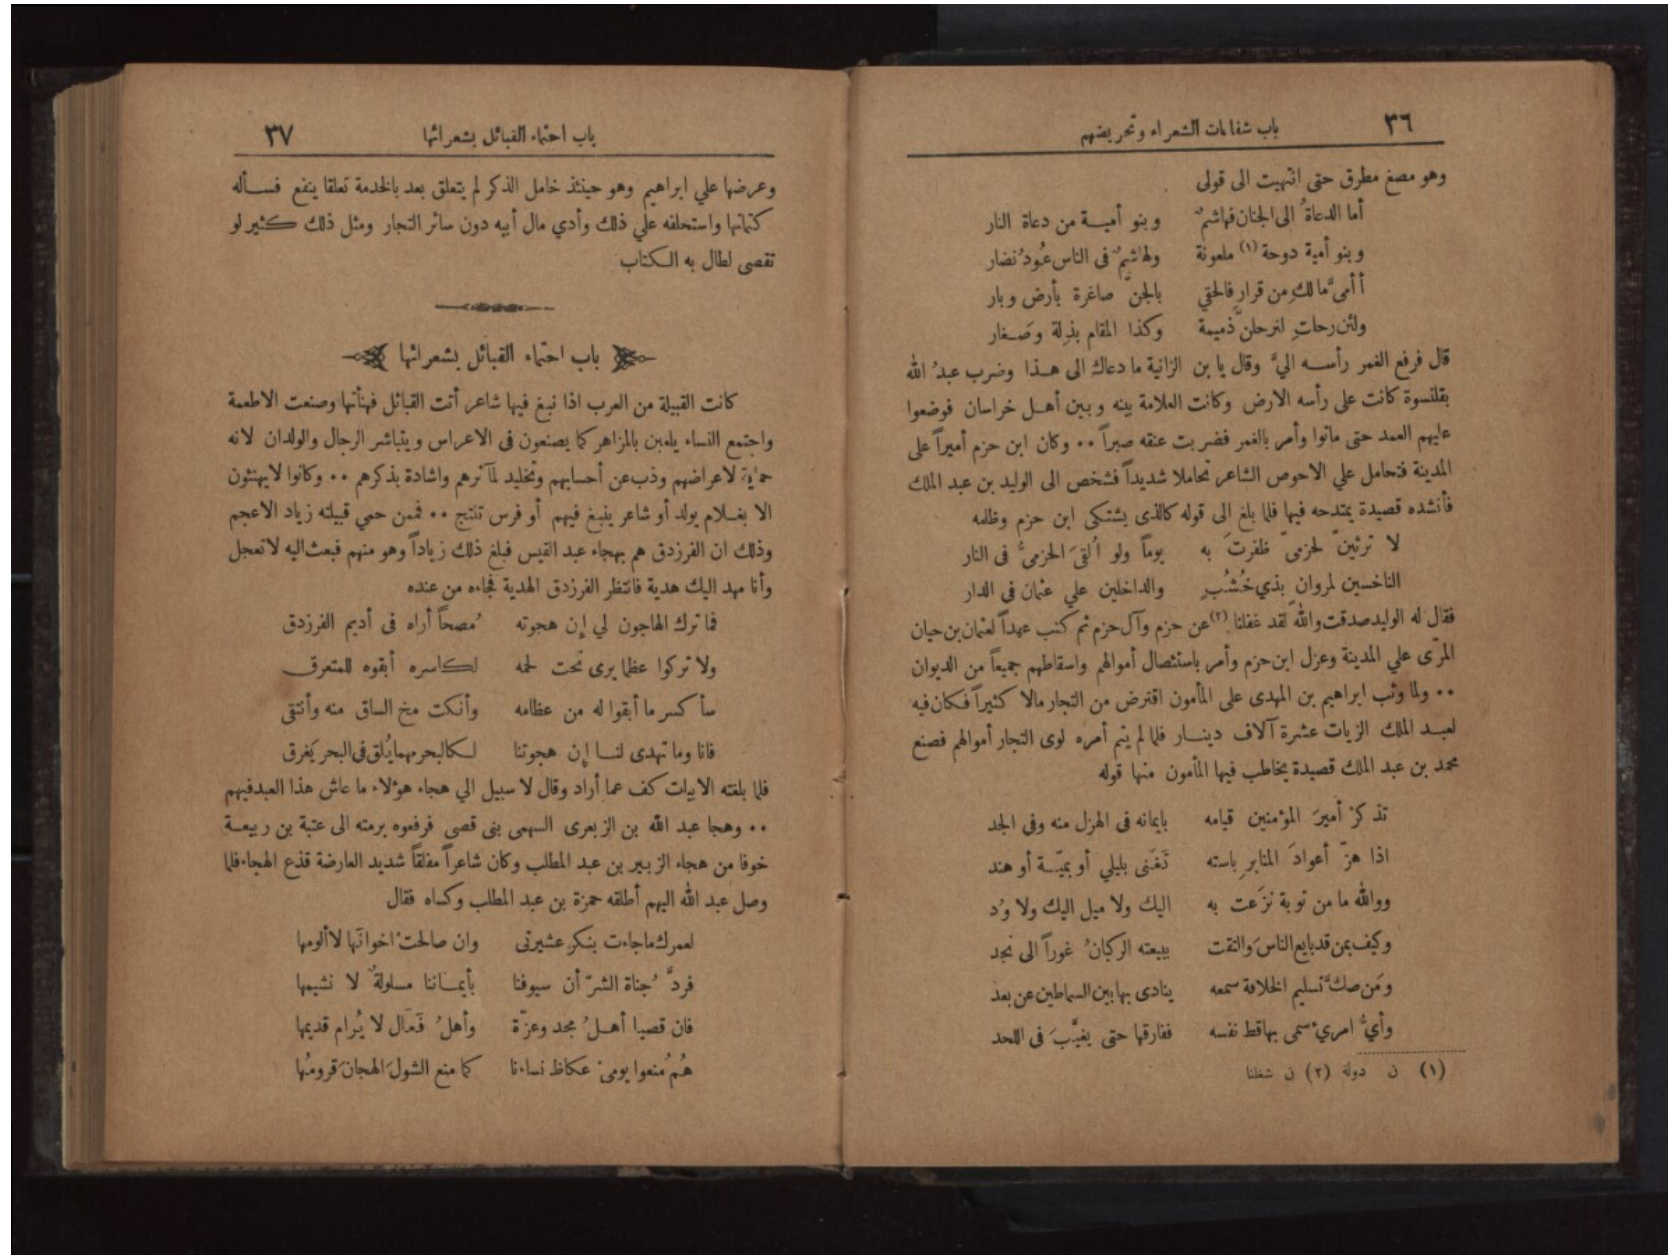 باب شفاعات الشعراء وتحريضهم ٣٦
وهو مصغ مطرق حتى انتهيت الى قولى
أما الدعاةُ الى الجنان فهاشمٌ وبنو أميــة من دعاة النار
وبنو أمية دوحة (١) ملعونة ولهاشمٌ فى الناس عُودُ نضار
أأمىَّ مالكِ من قرارٍ فالحقي بالجنّ صاغرة بأرض وبار
ولئن رحلتِ لترحلنّ ذميمة وكذا المقام بذِلة وصَـغار
قال فرفع الغمر رأســه اليَّ وقال يا بن الزانية ما دعاك الى هــذا وضرب عبدُ الله
بقلنسوة كانت على رأسه الارض وكانت العلامة بينه وبين أهــل خراسان فوضعوا
عليهم العمد حتى ماتوا وأمر بالغمر فضربت عنقه صبراً ٠٠ وكان ابن حزم أميراً على
المدينة فتحامل علي الاحوص الشاعر تحاملا شديداً فشخص الى الوليد بن عبد الملك
فأنشده قصيدة يمتدحه فيها فلما بلغ الى قوله كالذى يشتكى ابن حزم وظلمه
لا ترثينّ لحزمىّ ظفرتَ به يوماً ولو أُلقىَ الحزمىُّ فى النار
الناخسين لمروان بذي خُشُبٍ والداخلين علي عثمان فى الدار
فقال له الوليد صدقت والله لقد غفلنا (٢) عن حزم وآل حزم ثم كتب عهداً لعثمان بن حيان
المرّى علي المدينة وعزل ابن حزم وأمر باستئصال أموالهم واسقاطهم جميعاً من الديوان
٠٠ ولما وثب ابراهيم بن المهدى على المأمون اقترض من التجار مالا كثيراً فكان فيه
لعبــد الملك الزيات عشرة آلاف دينــار فلما لم يتم أمره لوى التجار أموالهم فصنع
محمد بن عبد الملك قصيدة يخاطب فيها المأمون منها قوله
تذكرْ أميرَ المؤمنين قيامه بايمانه فى الهزل منه وفي الجد
اذا هزّ أعوادَ المنابرِ باسته تَغَنى بليلي أو بميّــة أو هند
ووالله ما من توبة نزَعت به اليك ولا ميل اليك ولا وُد
وكيف بمن قد بايع الناسَ والتقت ببيعته الركبانُ غوراً الى نجد
ومَن صكّ تسليم الخلافة سمعه ينادى بها بين السماطين عن بعد
وأيُّ امرئٍ سمى بها قط نفسه ففارقها حتى يغيَّبَ فى اللحد
(١) ن دولة (٢) ن شغلنا
باب احتماء القبائل بشعرائها ٣٧
وعرضها علي ابراهيم وهو حينئذ خامل الذكر لم يتعلق بعد بالخدمة تعلقا ينفع فســأله
كتمانها واستحلفه علي ذلك وأدي مال أبيه دون سائر التجار ومثل ذلك كثير لو
تقصى لطال به الـكتاب
باب احتماء القبائل بشعرائها
كانت القبيلة من العرب اذا نبغ فيها شاعر أتت القبائل فهنأتها وصنعت الاطعمة
واجتمع النساء يلعبن بالمزاهر كما يصنعون فى الاعراس ويتباشر الرجال والولدان لانه
حماية لاعراضهم وذب عن أحسابهم وتخليد لمآثرهم واشادة بذكرهم ٠٠ وكانوا لايهنئون
الا بغــلام يولد أو شاعر ينبغ فيهم أو فرس تنتج ٠٠ فممن حمي قبيلته زياد الاعجم
وذلك ان الفرزدق هم بهجاء عبد القيس فبلغ ذلك زياداً وهو منهم فبعث اليه لاتعجل
وأنا مهد اليك هدية فانتظر الفرزدق الهدية فجاءه من عنده
فما ترك الهاجون لي إن هجوته مُصحاً أراه فى أديم الفرزدق
ولا تركوا عظما يرى تحت لحمه لكاسره أبقوه للمتعرق
سأكسر ما أبقوا له من عظامه وأنكت مخ الساق منه وأنتقى
فانا وما تهدى لنــا إن هجوتنا لـكالبحر مهما يُلق في البحر يَغرق
فلما بلغته الابيات كف عما أراد وقال لا سبيل الي هجاء هؤلاء ما عاش هذا العبد فيهم
٠٠ وهجا عبد الله بن الزبعرى السهمى بنى قصى فرفعوه برمته الى عتبة بن ربيعــة
خوفا من هجاء الزبير بن عبد المطلب وكان شاعراً مفلقاً شديد العارضة قذع الهجاء فلما
وصل عبد الله اليهم أطلقه حمزة بن عبد المطلب وكساه فقال
لعمرك ما جاءت بنكرٍ عشيرتى وان صالحتْ اخوانَها لا ألومها
فردَّ جُناة الشرّ أن سيوفنا بأيمــاننا مسلولةٌ لا نشيمها
فان قصيا أهــلُ مجد وعزّة وأهلُ فَعال لا يُرام قديمها
هُمُ مُنعوا يومىْ عكاظ نساءنا كما منع الشولَ الهجانَ قرومُها